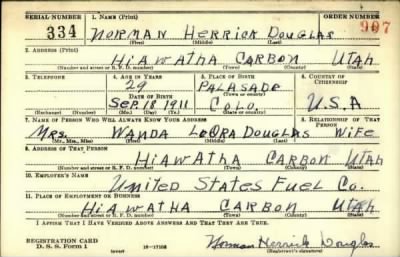 SERIAL NUMBER 1. NAME (Print) ORDER NUMBER
334 NORMAN HERRICK DOUGLAS 907
(First) (Middle) (Last)
2. ADDRESS (Print)
HIAWATHA CARBON UTAH
(Number and street or R. F. D. number) (Town) (County) (State)
3. TELEPHONE 4. AGE IN YEARS 5. PLACE OF BIRTH 6. COUNTRY OF CITIZENSHIP
29 PALASADE
DATE OF BIRTH (Town or county)
SEP. 18 1911 COLO. U.S.A
(Exchange) (Number) (Mo.) (Day) (Yr.) (State or country)
7. NAME OF PERSON WHO WILL ALWAYS KNOW YOUR ADDRESS 8. RELATIONSHIP OF THAT PERSON
MRS. WANDA LeORA DOUGLAS WIFE
(Mr., Mrs., Miss) (First) (Middle) (Last)
9. ADDRESS OF THAT PERSON
HIAWATHA CARBON UTAH
(Number and street or R. F. D. number) (Town) (County) (State)
10. EMPLOYER'S NAME
United States Fuel Co.
11. PLACE OF EMPLOYMENT OR BUSINESS
HIAWATHA CARBON UTAH
(Number and street or R. F. D. number) (Town) (County) (State)
I AFFIRM THAT I HAVE VERIFIED ABOVE ANSWERS AND THAT THEY ARE TRUE.
REGISTRATION CARD
D. S. S. Form 1 16—17105 Norman Herrick Douglas
(over) (Registrant's signature)